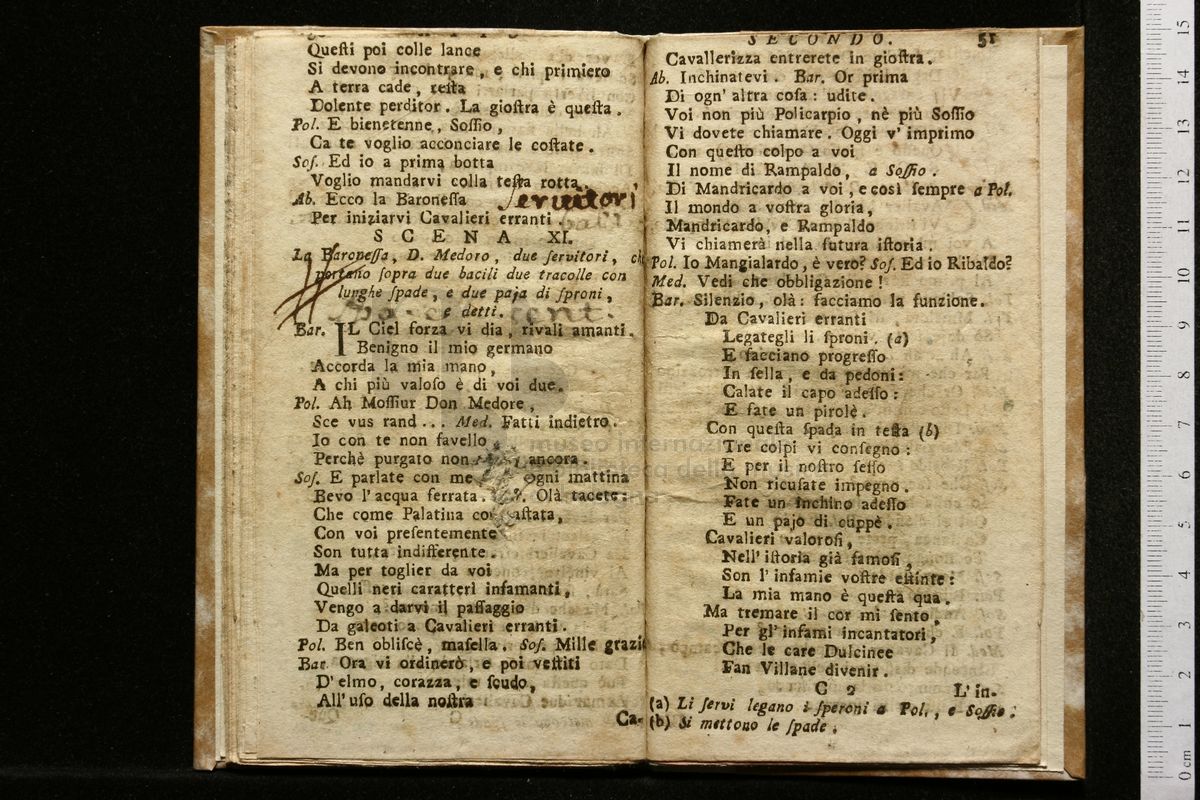 Queſti poi colle lance
Si devono incontrare, e chi primiero
A terra cade, reſta
Dolente perditor. La gioſtra è queſta.
Pol. E bienetenne, Soſſio,
Ca te voglio acconciare le coſtate.
Soſ. Ed io a prima botta
Voglio mandarvi colla teſta rotta.
Ab. Ecco la Baroneſſa ſervitori
Per iniziarvi Cavalieri erranti.
SCENA XI.
La Baroneſſa, D. Medoro, due ſervitori, che
portano ſopra due bacili due tracolle con
lunghe ſpade, e due paja di ſproni,
e detti.
Bar. IL Ciel forza vi dia, rivali amanti.
Benigno il mio germano
Accorda la mia mano,
A chi più valoſo è di voi due.
Pol. Ah Moſſiur Don Medore,
Sce vus rand... Med. Fatti indietro.
Io con te non favello
Perchè purgato non ancora.
Soſ. E parlate con me ogni mattina
Bevo l'acqua ferrata. Olà tacete:
Che come Palatina
Con voi preſentemente
Son tutta indifferente.
Ma per toglier da voi
Quelli neri caratteri infamanti,
Vengo a darvi il paſſaggio
Da galeoti a Cavalieri erranti.
Pol. Ben obliſcè, maſella. Soſ. Mille grazie
Bar. Ora vi ordinerò, e poi veſtiti
D'elmo, corazza, e ſcudo,
All'uſo della noſtra
Ca-
SECONDO. 51
Cavallerizza entrerete in gioſtra.
Ab. Inchinatevi. Bar. Or prima
Di ogn' altra coſa: udite.
Voi non più Policarpio, nè più Soſſio
Vi dovete chiamare. Oggi v' imprimo
Con queſto colpo a voi
Il nome di Rampaldo, a Soſſio.
Di Mandricardo a voi, e così ſempre a Pol.
Il mondo a voſtra gloria,
Mandricardo, e Rampaldo
Vi chiamerà nella futura iſtoria.
Pol. Io Mangialardo, è vero? Soſ. Ed io Ribaldo?
Med. Vedi che obbligazione!
Bar. Silenzio, olà: facciamo la funzione.
Da Cavalieri erranti
Legategli li ſproni. (a)
E facciano progreſſo
In ſella, e da pedoni:
Calate il capo adeſſo:
E fate un pirolè.
Con queſta ſpada in teſta (b)
Tre colpi vi conſegno:
E per il noſtro ſeſſo
Non ricuſate impegno.
Fate un inchino adeſſo
E un pajo di cuppè.
Cavalieri valoroſi,
Nell' iſtoria già famoſi,
Son l' infamie voſtre eſtinte:
La mia mano è queſta qua.
Ma tremare il cor mi ſento,
Per gl' infami incantatori,
Che le care Dulcinee
Fan Villane divenir.
C 2 L'in-
(a) Li ſervi legano i ſperoni a Pol., e Soſſio.
(b) Si mettono le ſpade.
museo internazionale
biblioteca della
0 cm 1 2 3 4 5 6 7 8 9 10 11 12 13 14 15